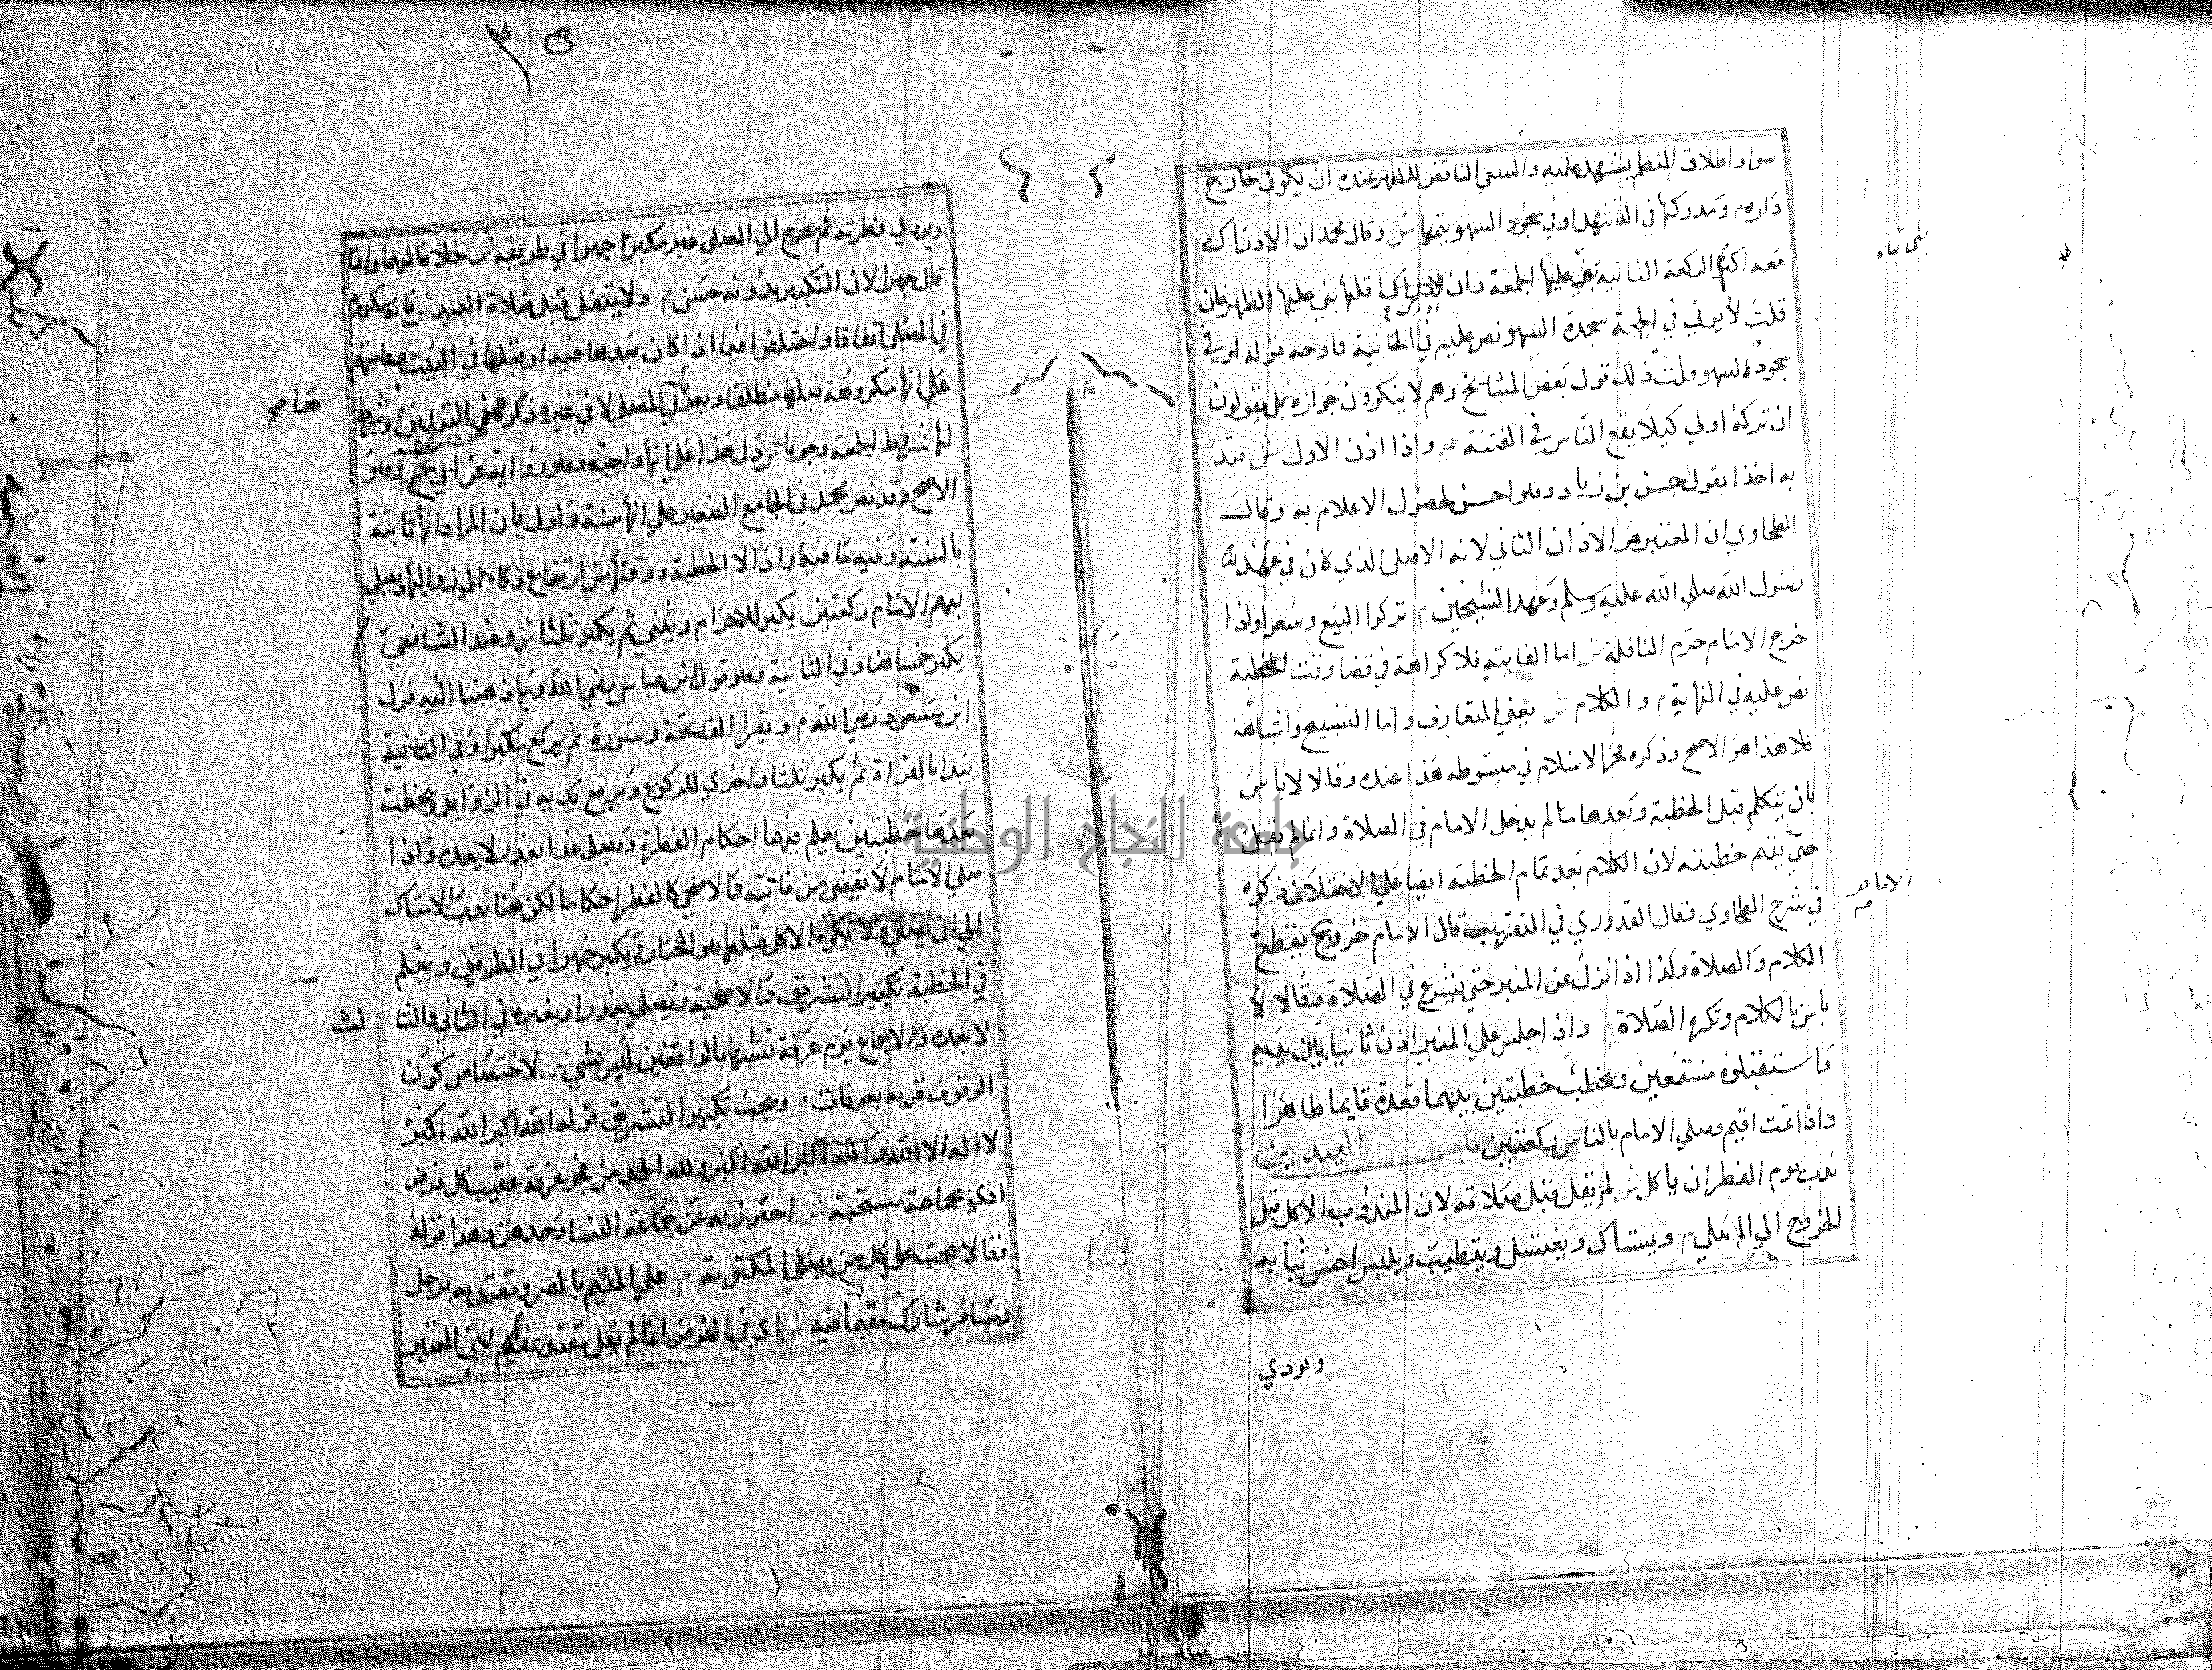 سوا واطلاق النظم يشهد عليه والسعي الناقض للظهر عنده ان يكون خارج
داره م ومدركها في التشهد او في سجود السهو يتمها ش وقال محمد ان الادراك
معه اكثر الركعة الثانية بني عليها الجمعة وان ادرك اقلها بني عليها الظهر فان
قلت لا يوتي في الجمعة سجدة السهو نص عليه في الخانية فاوجه قوله او في
سجود السهو قلت ذلك قول بعض المشائخ وهم لا ينكرون جوازه بل يقولون
ان تركه اولي كيلا يقع الناس في الفتنة م واذا اذن الاول ش قيد
به اخذا بقول حسن بن زياد وهو احسن لحصول الاعلام به وقال
الطحاوي ان المعتبر هو الاذان الثاني لانه الاصل الذي كان في عهد
رسول الله صلي الله عليه وسلم وعهد الشيخين م تركوا البيع وسعوا واذا
خرج الامام حرم النافلة ش اما الفايتة فلا كراهة في قضا وقت الخطبة
نص عليه في النهاية م والكلام ش يعني المتعارف واما التسبيح واشباهه
فلا هذا هو الاصح وذكره فخر الاسلام في مبسوطه هذا عنده وقالا لا باس
بان يتكلم قبل الخطبة وبعدها ما لم يدخل الامام في الصلاة وانما لم يقل
حتي يتم خطبته لان الكلام بعد تمام الخطبة ايضا علي الاختلاف ذكره
في شرح الطحاوي فقال القدوري في التقريب قال الامام خروج يقطع
الامام
الكلام والصلاة وكذا اذا نزل عن المنبر حتي يشرع في الصلاة وقالا لا
باس بالكلام وتكره الصلاة م واذا جلس علي المنبر اذن ثانيا بين يديه
واستقبلوه مستمعين ويخطب خطبتين بينهما قعدة قايما طاهرا
واذا تمت اقيم وصلي الامام بالناس ركعتين باب العيدين
ندب يوم الفطر ان ياكل ش لم يقل قبل صلاته لان المندوب الاكل قبل
الخروج الي المصلي م ويستاك ويغتسل ويتطيب ويلبس احسن ثيابه
ويودي
٣٥
ويودي فطرته ثم يخرج الي المصلي غير مكبرا جهرا في طريقه ش خلافا لهما وانما
قال جهرا لان التكبير بدونه حسن م ولا يتنفل قبل صلاة العيد ش فانه مكروه
في المصلي اتفاقا واختلفوا فيما اذا كان بعدها فيه او قبلها في البيت وعامتهم
علي انها مكروهة قبلها مطلقا وبعدها في المصلي لا في غيره ذكره وشرط
لها شروط الجمعة وجوبا ش دل هذا علي انها واجبة وهو رواية عن ابي ح وهو
الاصح وقد نص محمد في الجامع الصغير علي انها سنة واول بان المراد انها ثابتة
بالسنة وفيه ما فيه وادا الا الخطبة ووقتها من ارتفاع ذكاء الي زوالها ويصلي
بهم الامام ركعتين يكبر للاحرام ويثني ثم يكبر ثلثا ش وعند الشافعي
يكبر خمسا هنا وفي الثانية وهو قول ابن عباس رضي الله وباذ هنا اليه قول
ابن مسعود رضي الله م ويقرا الفاتحة وسورة ثم يركع مكبرا وفي الثانية
يبدا بالقراة ثم يكبر ثلثا واخري للركوع ويرفع يديه في الزوايد ويخطب
بعدها خطبتين يعلم فيهما احكام الفطرة ويصلي غدا بعذر لا بعده واذا
صلي الامام لا يقضي من فاتته والاضحي كالفطر احكاما لكن هنا ندب الامساك
الي ان يصلي ولا يكره الاكل قبلها هو المختار ويكبر جهرا في الطريق ويعلم
في الخطبة تكبير التشريق والاضحية ويصلي بعذر او بغيره في الثاني والثا لث
لا بعده والاجماع يوم عرفة تشبها بالواقفين ليس بشي ش لاختصاص كون
الوقوف قربه بعرفات م ويجب تكبير التشريق قوله الله اكبر الله اكبر
لا اله الا الله والله اكبر الله اكبر ولله الحمد من فجر عرفة عقيب كل فرض
ادي بجماعة مستحبة ش احترز به عن جماعة النسا وحدهن وهذا قوله
فقالا يجب علي كل من يصلي المكتوبة م علي المقيم بالمصر ومقتديه برجل
ومسافر شارك مقيما فيه ش اي في الفرض انما لم يقل مقتد بمقيم لان المعتبر